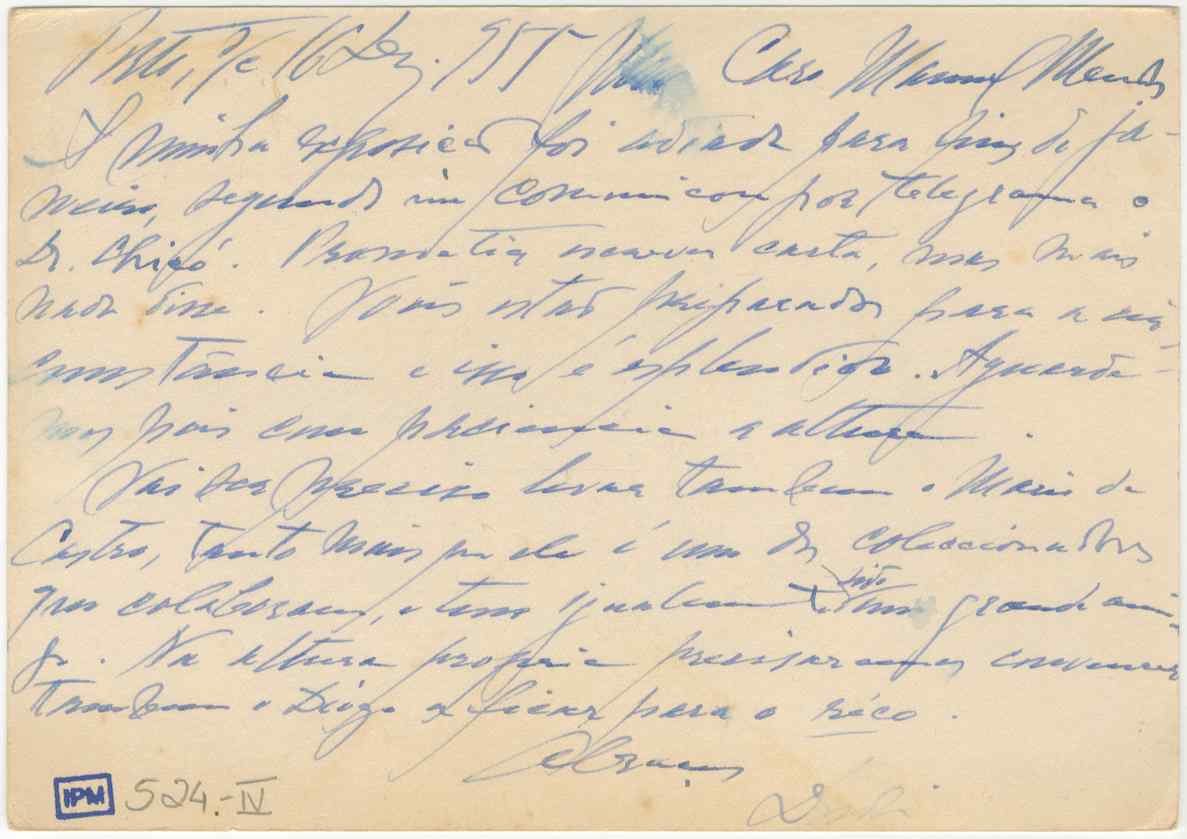 Porto, 16 Dez. 955 Caro Manuel Mendes
A minha exposição foi adiada para fins de ja-
neiro, segundo me comunicou por telegrama o
Dr. Chicó. Prometia escrever carta, mas mais
nada disse. Vocês estão preparados para a cir-
cunstância e isso é esplendido. Aguarde-
mos pois com paciencia a altura.
Vai ser preciso levar tambem o Mario de
Castro, tanto mais que ele é um dos coleccionadores
que colaboram, e tem igualmente sido um grande ami-
go. Na altura propria precisaremos convencer
tambem o Diogo a ficar para o
Abraços
IPM 524.-IV